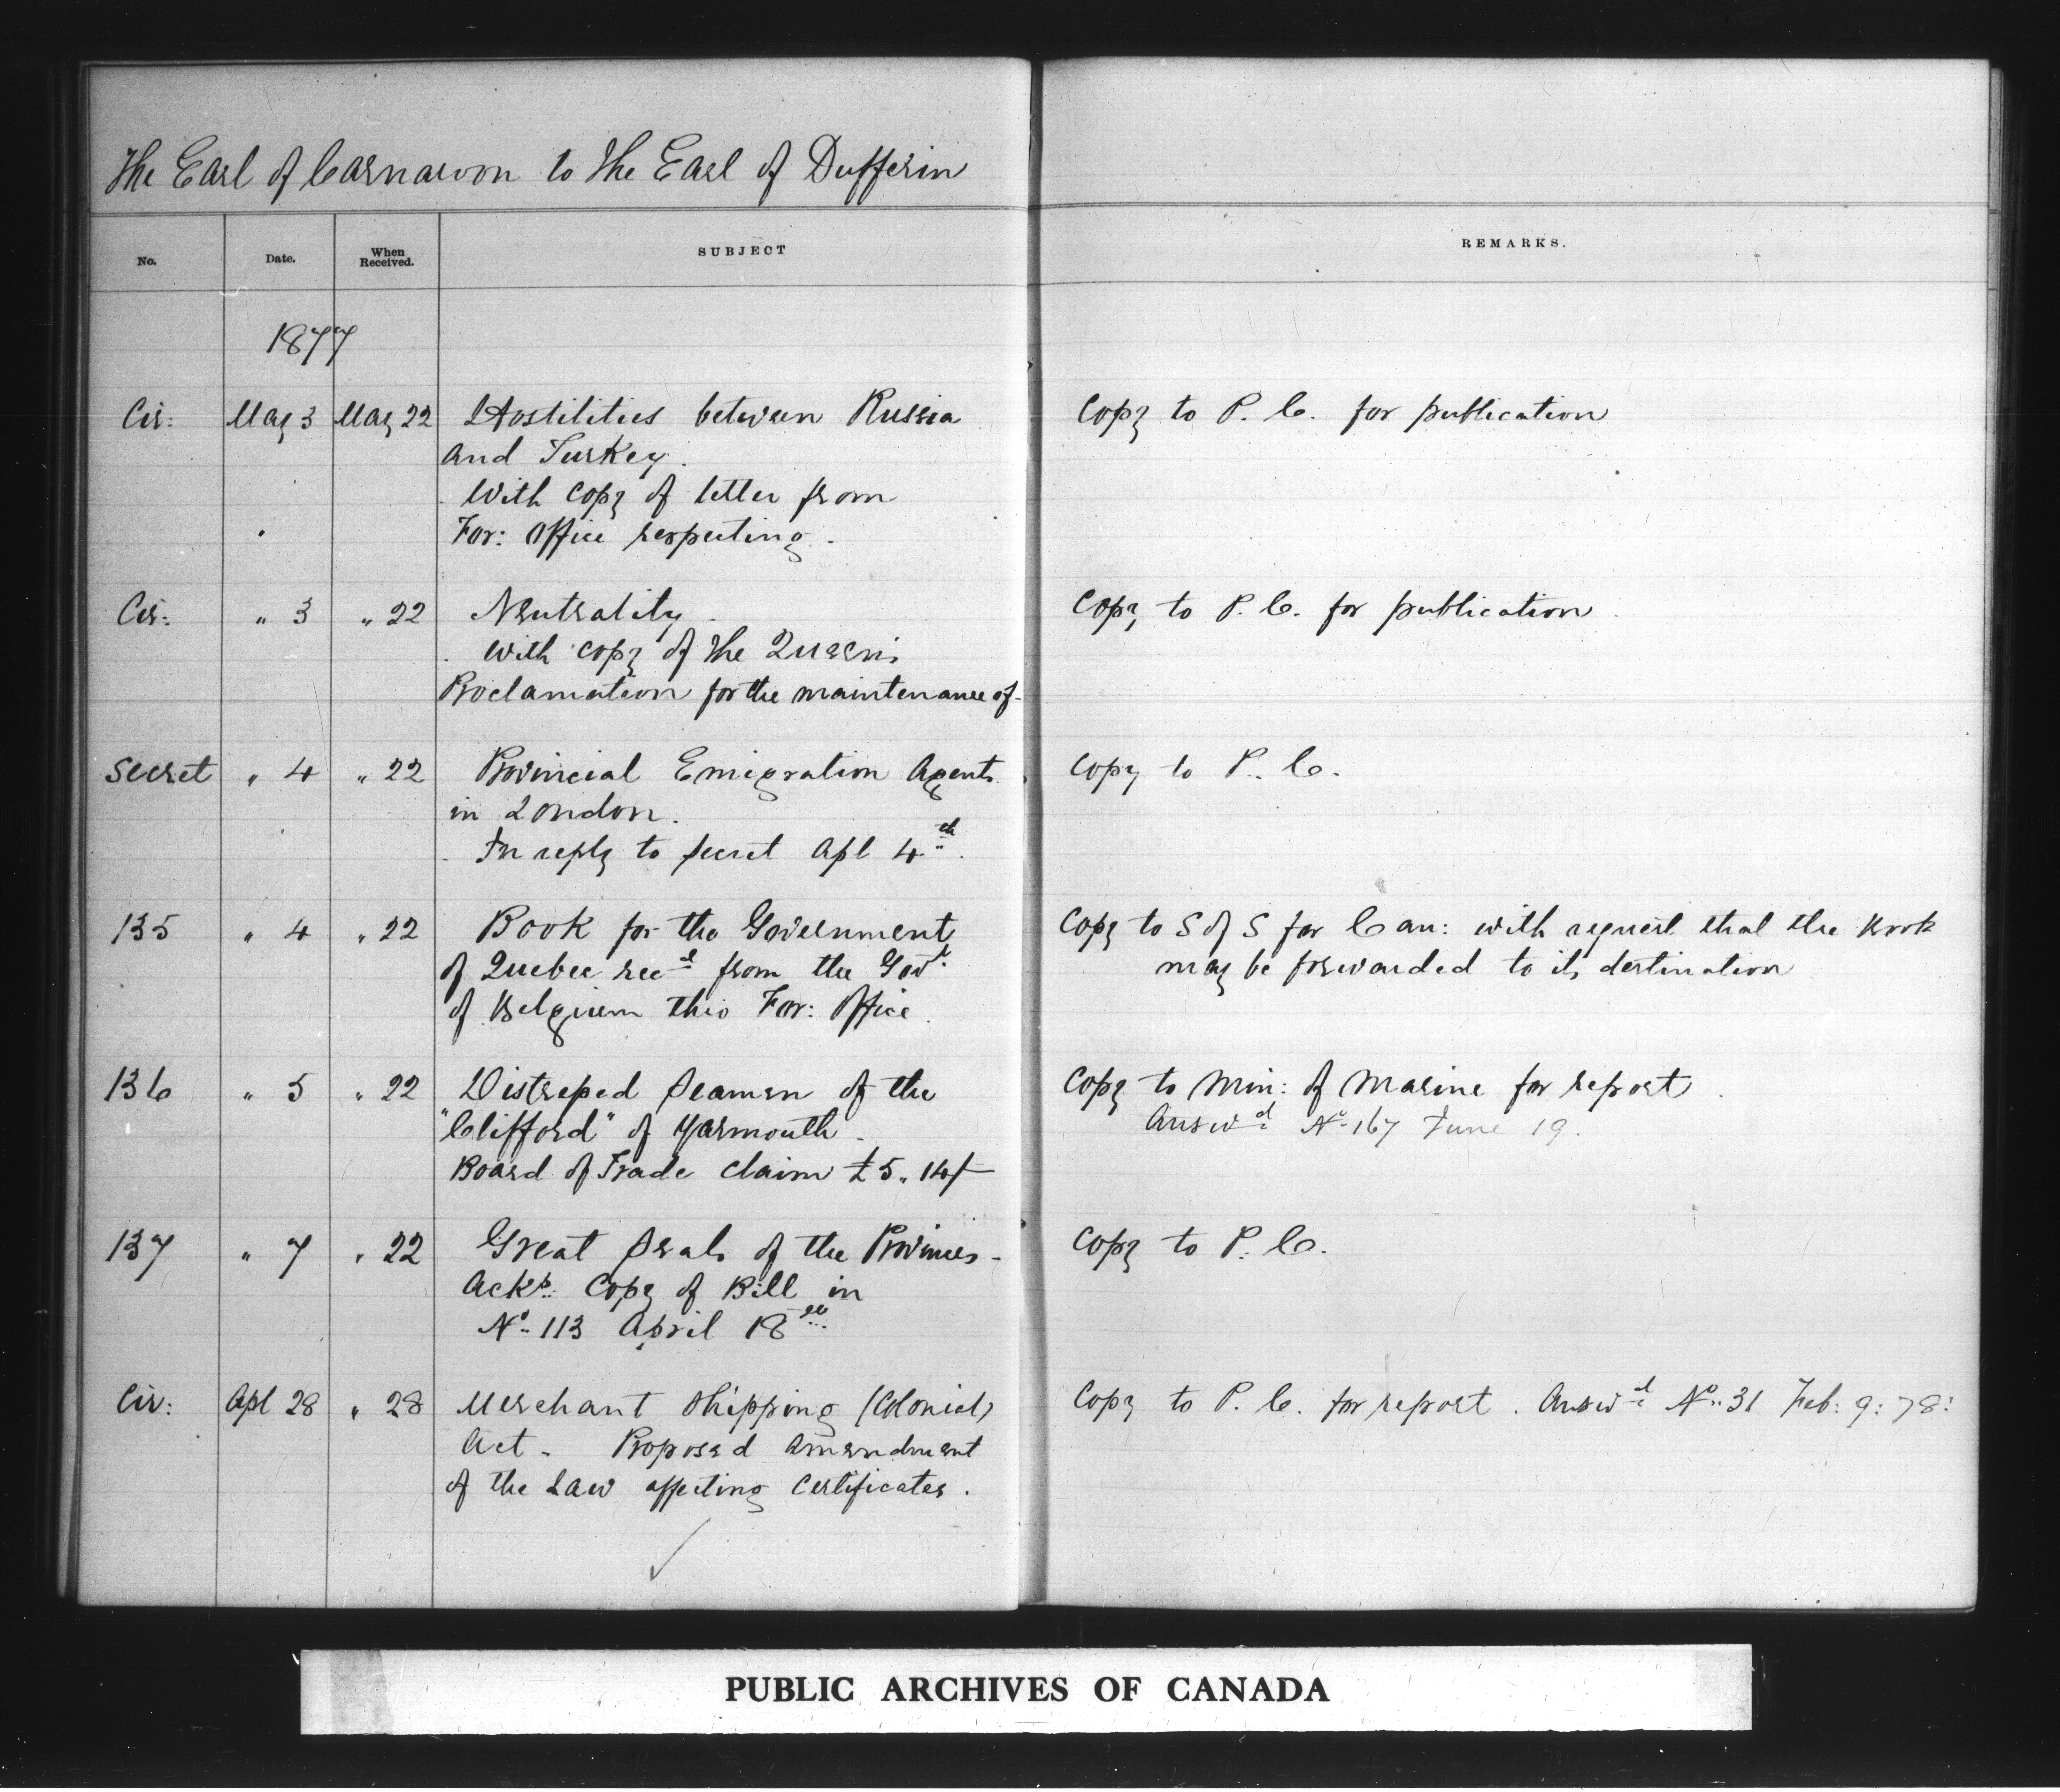 The Earl of Carnarvon to the Earl of Dufferin
No. Date. When Received. SUBJECT REMARKS.
1877
Cir: May 3 May 22 Hostilities between Russia Copy to P. C. for publication
and Turkey.
With copy of letter from
For: Office respecting.
Cir: " 3 " 22 Neutrality. Copy to P. C. for publication
With copy of the Queen's
Proclamation for the maintenance of-
Secret " 4 " 22 Provincial Emigration Agents Copy to P. C.
in London.
In reply to Secret Apl 4th.
135 " 4 " 22 Book for the Government Copy to S of S for Can: with request that the Book
of Quebec recd from the Govt. may be forwarded to its destination
of Belgium thro For: Office.
136 " 5 " 22 Distressed Seamen of the Copy to Min: of Marine for report.
"Clifford" of Yarmouth - Answd No 167 June 19.
Board of Trade claim £5. 14/-
137 " 7 " 22 Great Seals of the Provinces - Copy to P. C.
Acks. Copy of Bill in
No. 113 April 18th
Cir: Apl 28 " 28 Merchant Shipping (Colonial) Copy to P. C. for report. Answd No. 31 Feb: 9: 78:
Act - Proposed amendment
of the Law affecting Certificates.
PUBLIC ARCHIVES OF CANADA